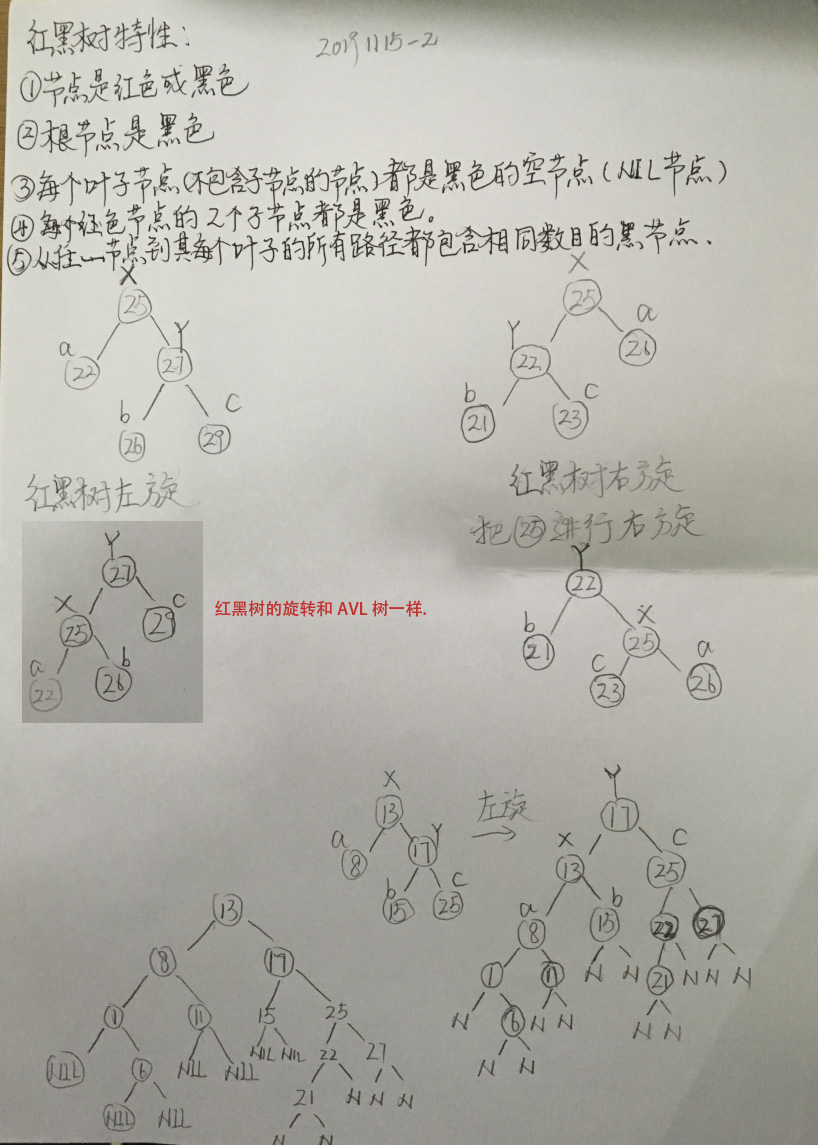 红黑树特性：
20191115-2
①节点是红色或黑色
②根节点是黑色
③每个叶子节点(不包含子节点的节点)都是黑色的空节点(NIL节点)
④每个红色节点的2个子节点都是黑色。
⑤从任一节点到其每个叶子的所有路径都包含相同数目的黑节点、
X
25
a
22
Y
27
b
26
C
29
X
25
a
26
Y
22
b
21
C
23
红黑树左旋
红黑树右旋
把㉕进行右旋
Y
27
X
25
C
29
a
22
b
26
红黑树的旋转和 AVL 树一样.
Y
22
b
21
X
25
C
23
a
26
X
13
a
8
Y
17
b
15
C
25
左旋
Y
17
X
13
C
25
a
8
b
15
22
27
1
11
N N
21
N N N
N
6
N N
N N
N N
13
8
17
1
11
15
25
NIL
6
NIL NIL
NIL NIL
22
27
NIL NIL
21
N N N
N N